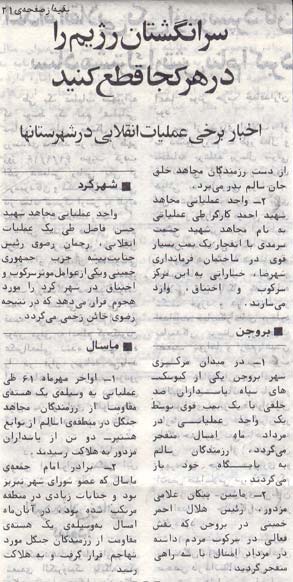 بقیه از صفحه‌ی ۲۱
سرانگشتان رژیم را
در هر کجا قطع کنید
اخبار برخی عملیات انقلابی در شهرستانها
از دست رزمندگان مجاهد خلق
جان سالم بدر می‌برد.
۲- واحد عملیاتی مجاهد
شهید احمد کارگر طی عملیاتی
به نام مجاهد شهید حشمت
سرمدی با انفجار یک بمب بسیار
قوی در ساختمان فرمانداری
شهرضا، خساراتی به این مرکز
سرکوب و اختناق، وارد
می‌سازند.
■ بروجن
۱- در میدان مرکزی
شهر بروجن یکی از کیوسک
های سپاه پاسداران ضد
خلقی با یک بمب قوی توسط
یک واحد عملیاتی در
مرداد ماه امسال منفجر
می‌گردد. رزمندگان سالم
به پایگاه خود باز
می‌گردند.
۲- ماشین پیکان غلامی
مزدور، رئیس هلال احمر
خمینی در بروجن که نقش
فعالی در سرکوب مردم داشته
در مرداد امسال با سه راهی
منفجر گردید
■ شهرکرد
واحد عملیاتی مجاهد شهید
حسن فاضل طی یک عملیات
انقلابی، رحمان رضوی رئیس
جنایت‌پیشه حزب جمهوری
خمینی و یکی از عوامل موثر سرکوب و
اختناق در شهر کرد را مورد
هجوم قرار می‌دهد که در نتیجه
رضوی خائن زخمی می‌گردد.
■ ماسال
۱- اواخر مهرماه ۶۱ طی
عملیاتی به وسیله‌ی یک هسته‌ی
مقاومت از رزمندگان مجاهد
جنگل در منطقه‌ی اباتر از توابع
دو تن از پاسداران
مزدور به هلاکت رسیدند.
۲- برادر امام جمعه‌ی
ماسال که عضو شورای شهر نیز
بود و جنایات زیادی در منطقه
مرتکب شده بود، در آبان‌ماه
امسال به‌وسیله‌ی یک هسته‌ی
مقاومت از رزمندگان جنگل مورد
تهاجم قرار گرفت و به هلاکت
رسید